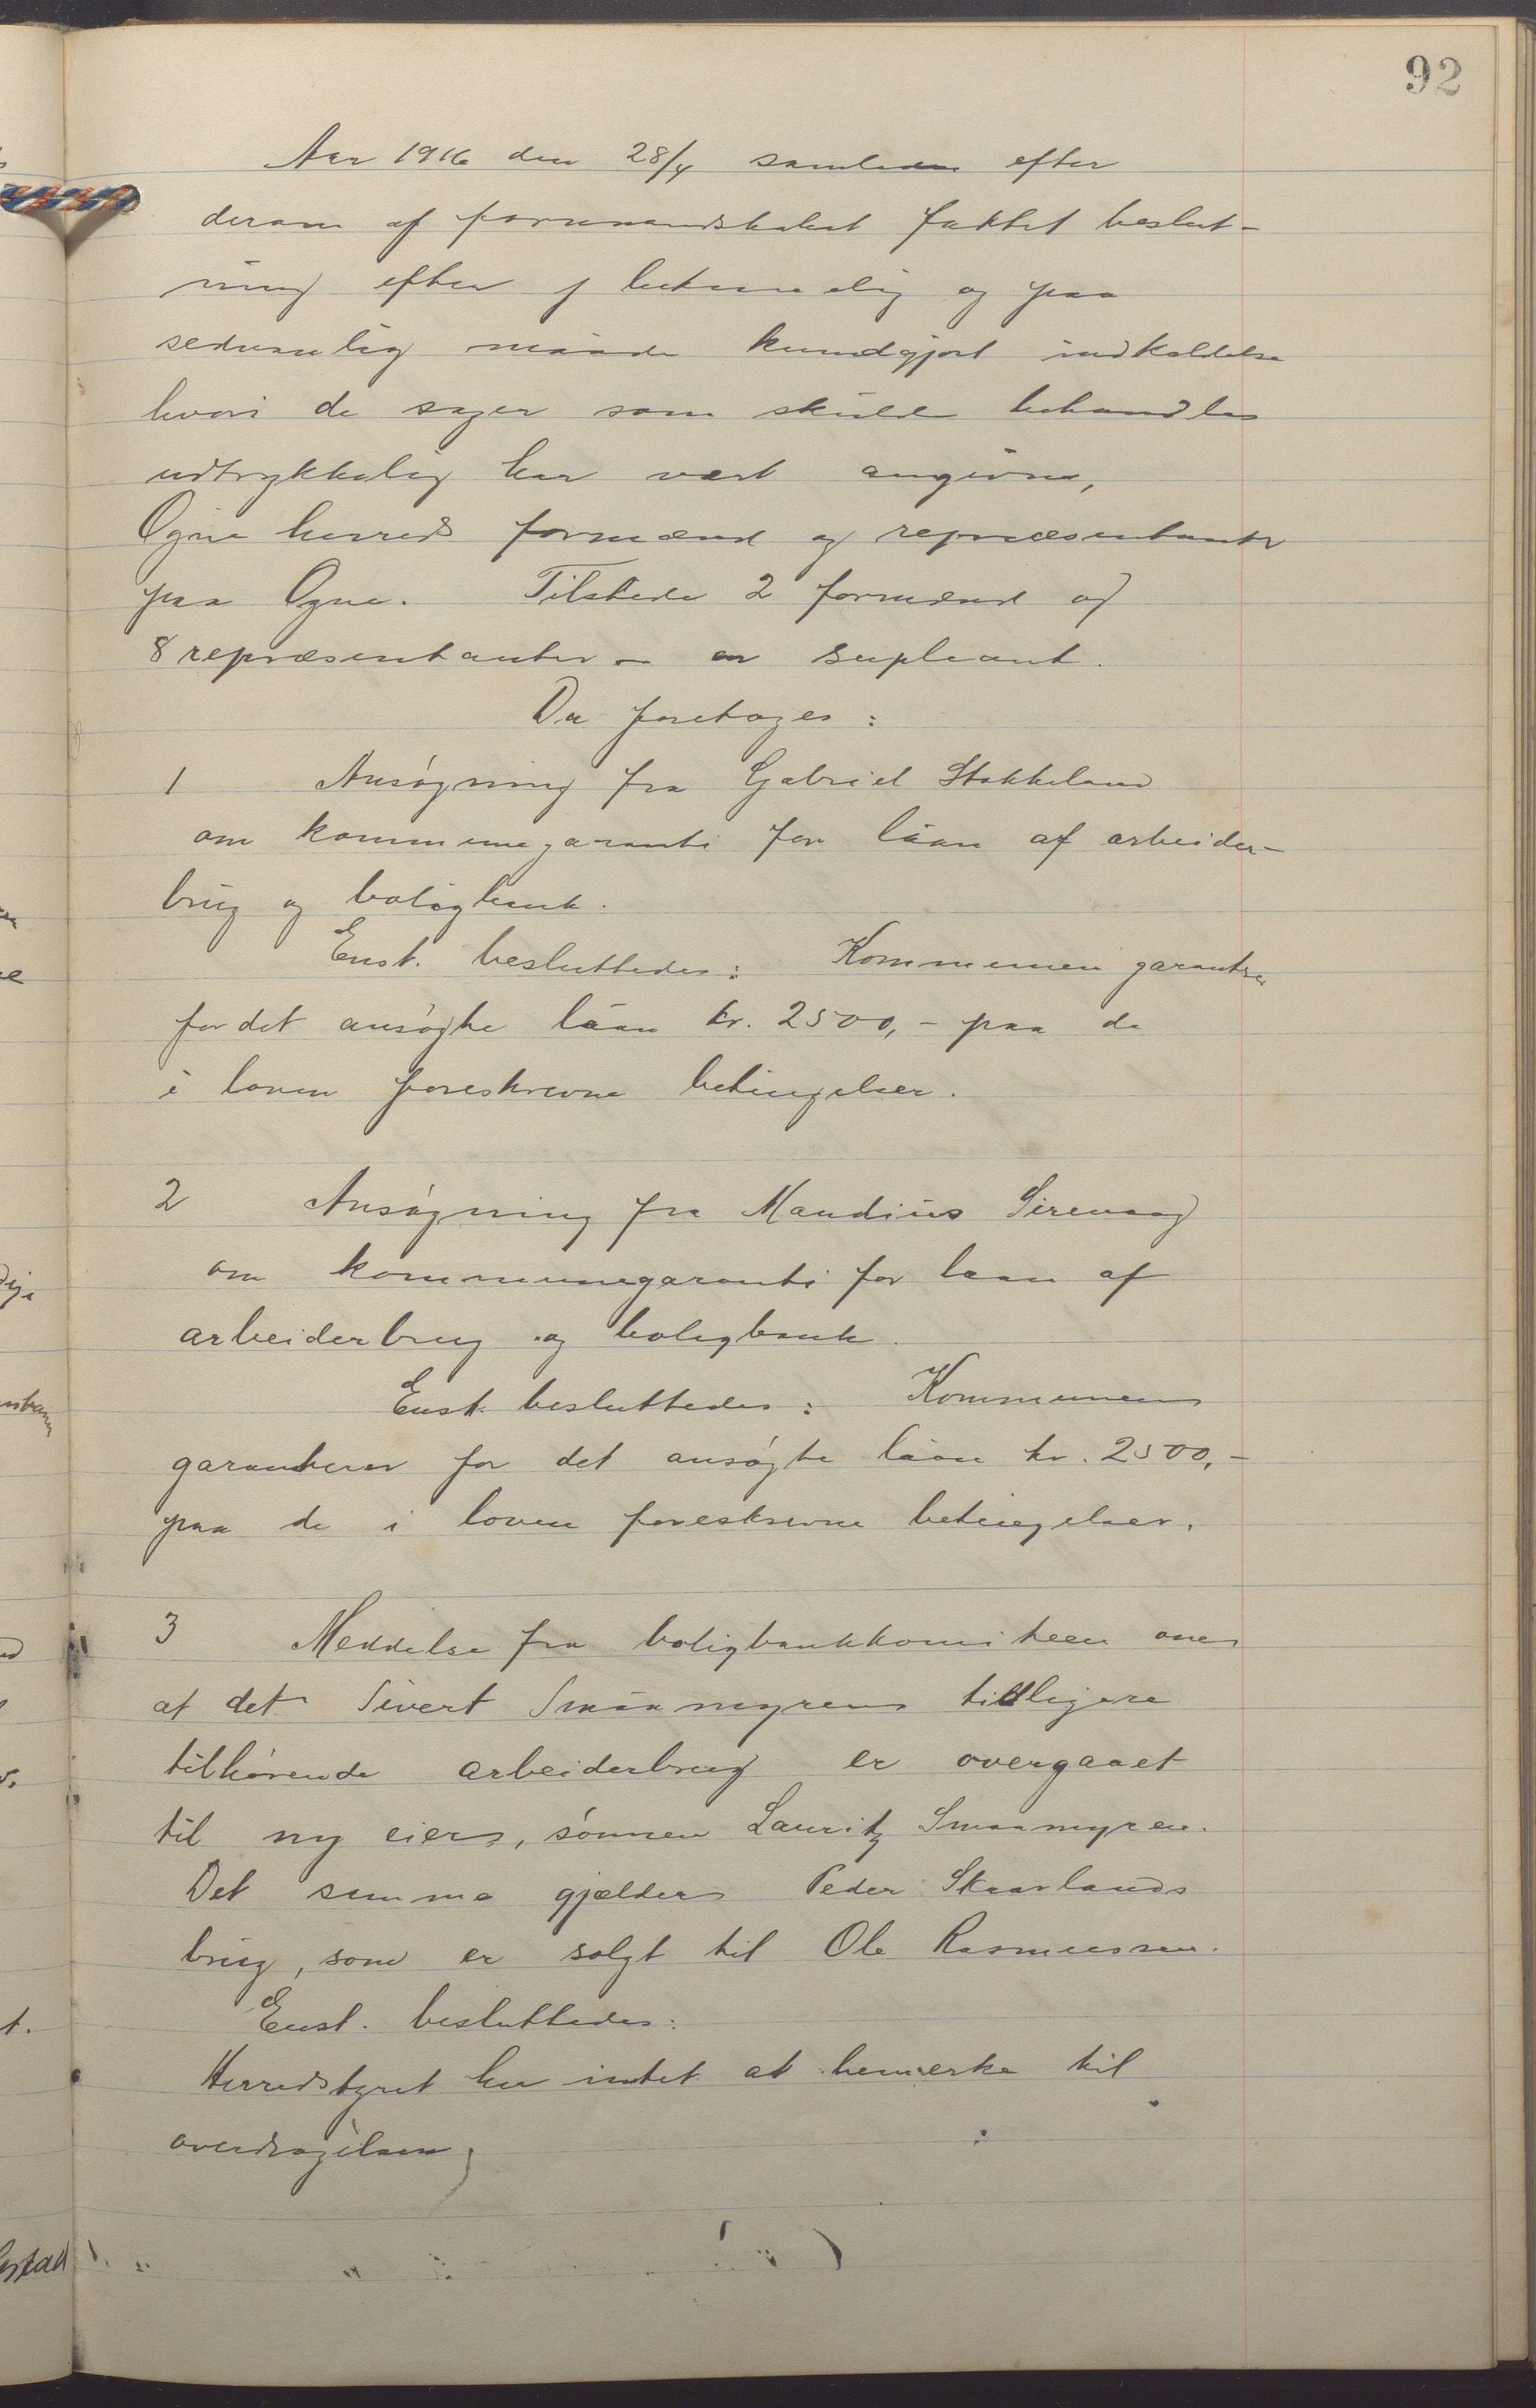 92
Aar 1916 den 28/4 samledes efter
derom af formandskabet fattet beslut-
ning efter betimelig og paa
sedvanlig maade kundgjort indkaldelse
hvori de sager som skulde behandles
udtrykkelig har vært angivne,
Ogne herreds formænd og repræsentanter
paa Ogne. Tilstede 2 formænd og
8 repræsentanter - en supleant.
Da foretoges:
1 Ansøgning fra Gabriel Stokkeland
om kommunegaranti for låan af arbeider-
brug og boligbank.
Enst. besluttedes: Kommunen garanterer
for det ansøgte låan kr. 2500,- paa de
i loven foreskrevne betingelser.
2 Ansøgning fra Maudius Sirevaag
om kommunegaranti for laan af
arbeiderbrug og boligbank.
Enst. besluttedes: Kommunen
garanterer for det ansøgte låan kr. 2500,-
paa de i loven foreskrevne betingelser.
3 Meddelse fra boligbankkomiteen om
at det Sivert Smaamyren tidligere
tilhørende arbeiderbrug er overgaaet
til ny eier, sønnen Lauritz Smaamyren.
Det samme gjælder Peder Skaarlands
brug, som er solgt til Ole Rasmussen.
Enst. besluttedes:
Herredstyret har intet at bemerke til
overdragelsen